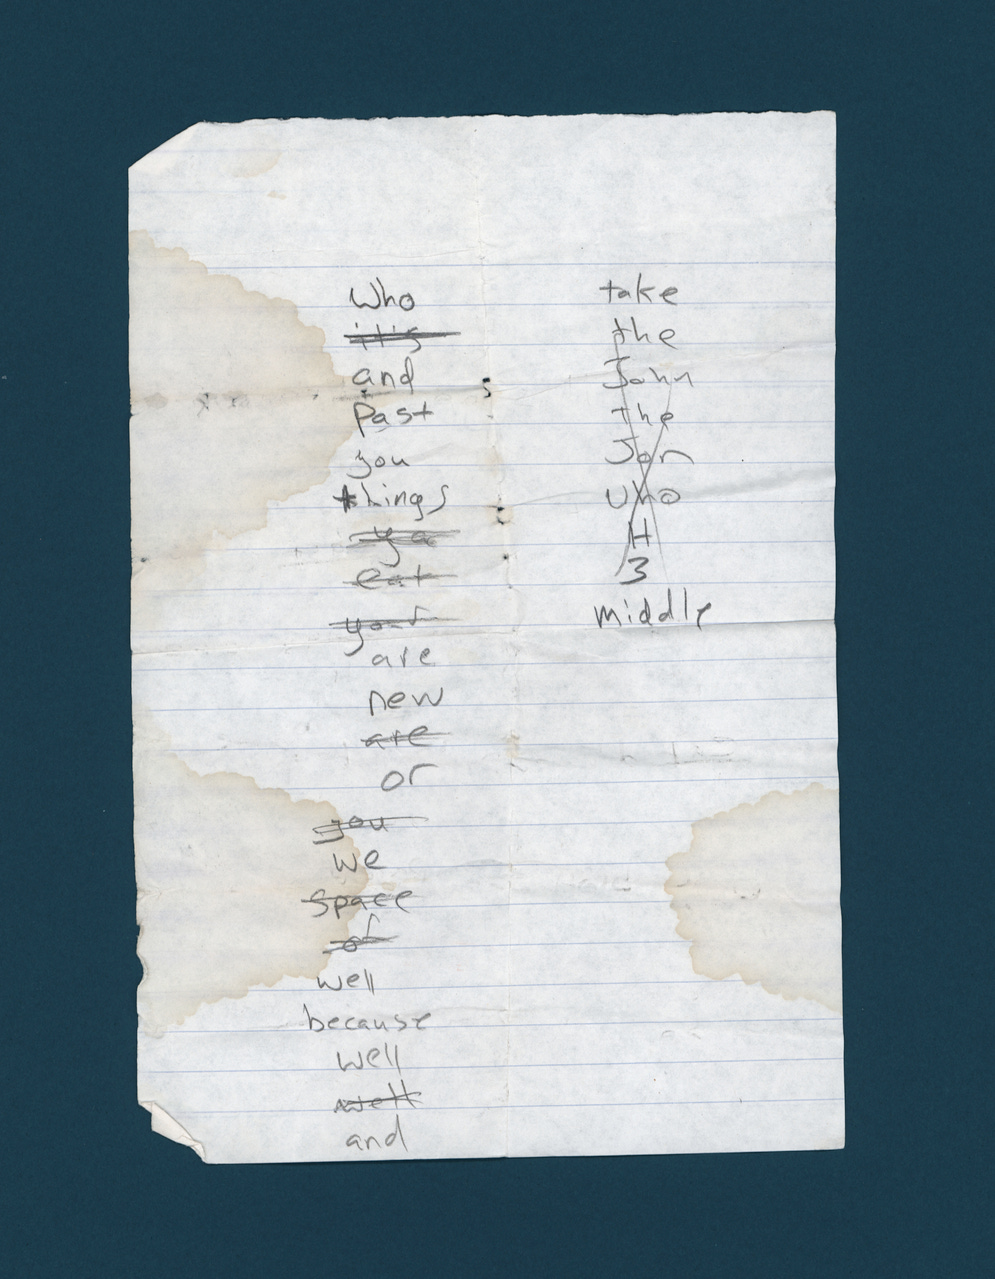 Who
it's
and
Past
you
things
ya
eat
your
are
new
are
or
you
we
space
of
well
because
well
well
and
take
the
John
the
Jon
Who
H
3
middle